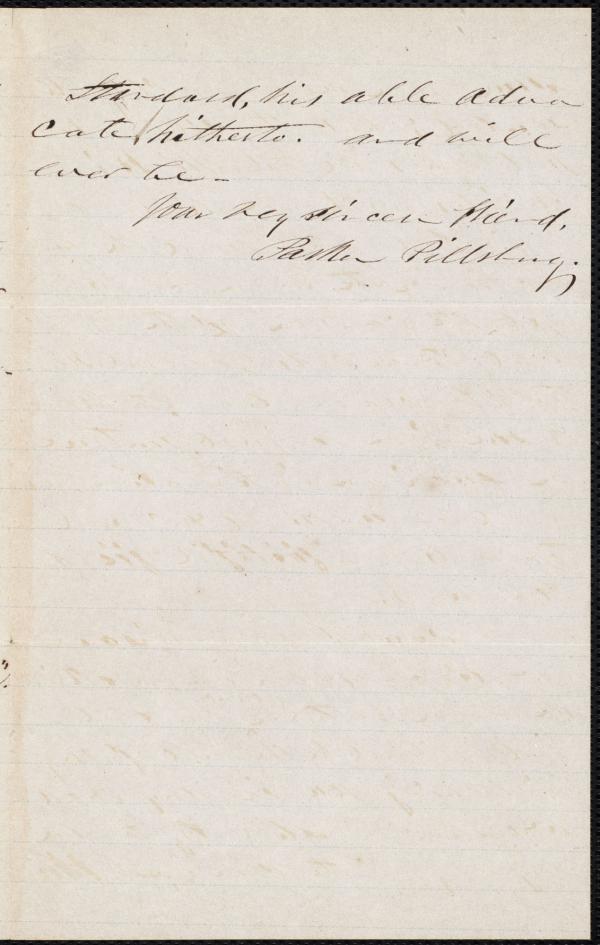 Standard, his able advo
cate hitherto. and will
ever be -
Your very sincere friend,
Parker Pillsbury.